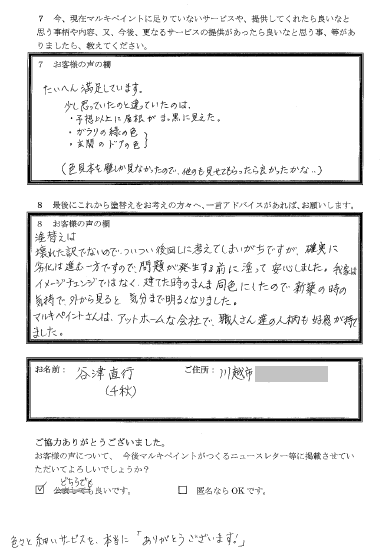 7 今、現在マルキペイントに足りていないサービスや、提供してくれたら良いなと
思う事柄や内容、又、今後、更なるサービスの提供があったら良いなと思う事、等があ
りましたら、教えてください。
7 お客様の声の欄
たいへん満足しています。
少し思っていたのと違っていたのは、
・予想以上に屋根がま黒に見えた。
・ガラリの緑の色
・玄関のドアの色
(色見本を 見なかったので、他のも見せてもらったら良かったかな..)
8 最後にこれから塗替えをお考えの方々へ、一言アドバイスがあれば、お願いします。
8 お客様の声の欄
塗替えは
壊れた訳でないので、ついつい後回しに考えてしまいがちですが、確実に
劣化は進む一方ですので、問題が発生する前に塗って安心しました。我家は
イメージチェンジではなく、建てた時のまんま同色にしたので新築の時の
気持で、外から見ると気分まで明るくなりました。
マルキペイントさんは、アットホームな会社で、職人さん達の人柄も好感が持て
ました。
お名前: 谷津直行
(千秋)
ご住所: 川越市
ご協力ありがとうございました。
お客様の声について、今後マルキペイントがつくるニュースレター等に掲載させてい
ただいてよろしいでしょうか?
どちらでも
☑ 公表しても良いです。 □ 匿名ならOKです。
色々と細いサービスを、本当に「ありがとうございます!」